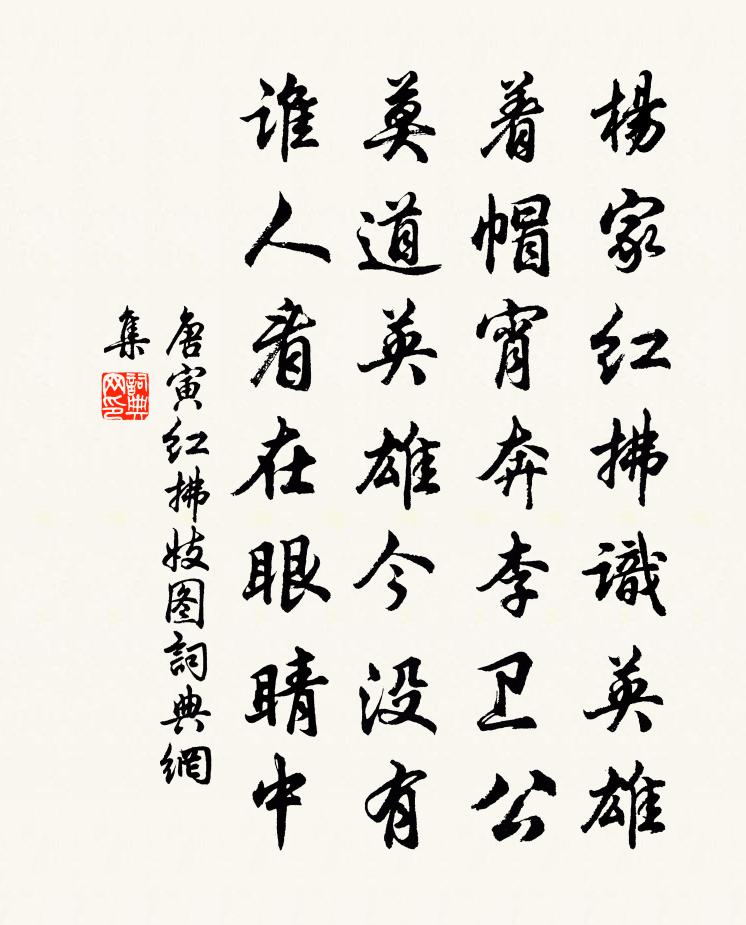 楊家红拂識英雄
着帽宵奔李卫公
莫道英雄今没有
谁人看在眼睛中
唐寅红拂妓图詞典網
集
詞典网印